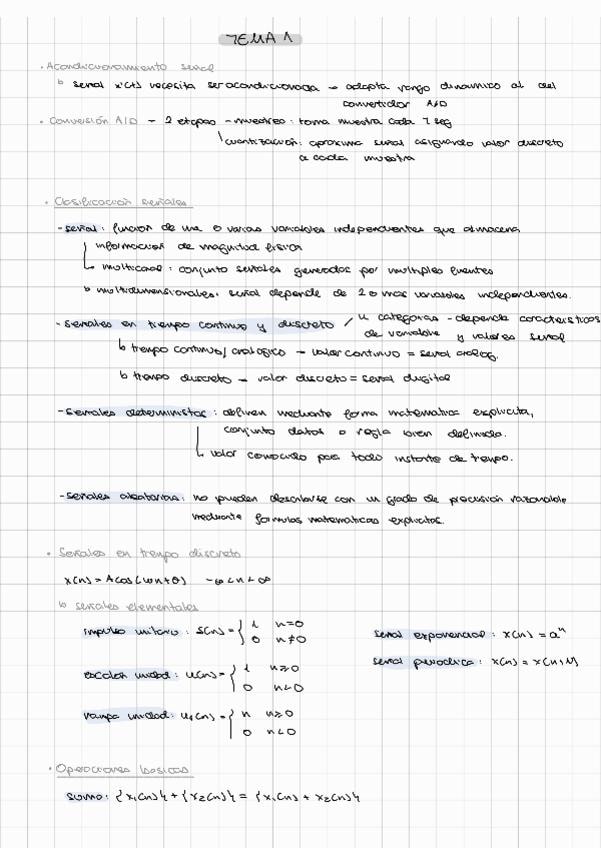 TEMA 1
· Acondicionamiento señal
↳ señal x(t) necesita ser acondicionada → adapta rango dinamico al del
convertidor A/D
· Conversión A/D - 2 etapas - muestreo: toma muestra cada T seg
cuantización: aproxima señal asignando valor discreto
a cada muestra
· Clasificación señales
- señal: función de una o varias variables independientes que almacena
información de magnitud física
multicanal: conjunto señales generadas por multiples fuentes
↳ multidimensionales: señal depende de 2 o mas variables independientes.
- señales en tiempo continuo y discreto / 4 categorias - depende características
de variable y valores señal
↳ tiempo continuo/analógico → valor continuo = señal analog.
↳ tiempo discreto → valor discreto = señal digital
- señales deterministas: definen mediante forma matematica explicita,
conjunto datos o regla bien definida.
↳ valor conocido para todo instante de tiempo.
- señales aleatorias: no pueden describirse con un grado de precisión razonable
mediante formulas matematicas explicitas.
· Señales en tiempo discreto
x(n) = A cos(ωn+θ) -∞<n<∞
↳ señales elementales
impulso unitario: δ(n) = { 1 n=0
0 n≠0
señal exponencial: x(n) = aⁿ
señal periodica: x(n) = x(n+N)
escalon unidad: u(n) = { 1 n≥0
0 n<0
rampa unidad: uᵣ(n) = { n n≥0
0 n<0
· Operaciones basicas
suma: {x₁(n)} + {x₂(n)} = {x₁(n) + x₂(n)}